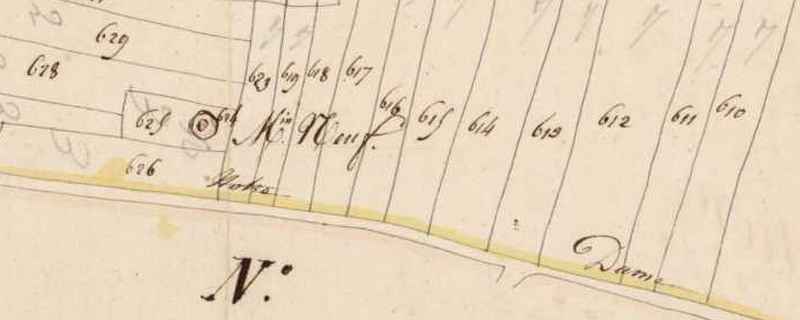 629
628
623 619 618 617
616 615 614 613 612 611 610
625 624 Min Neuf.
626
Notre Dame
N: